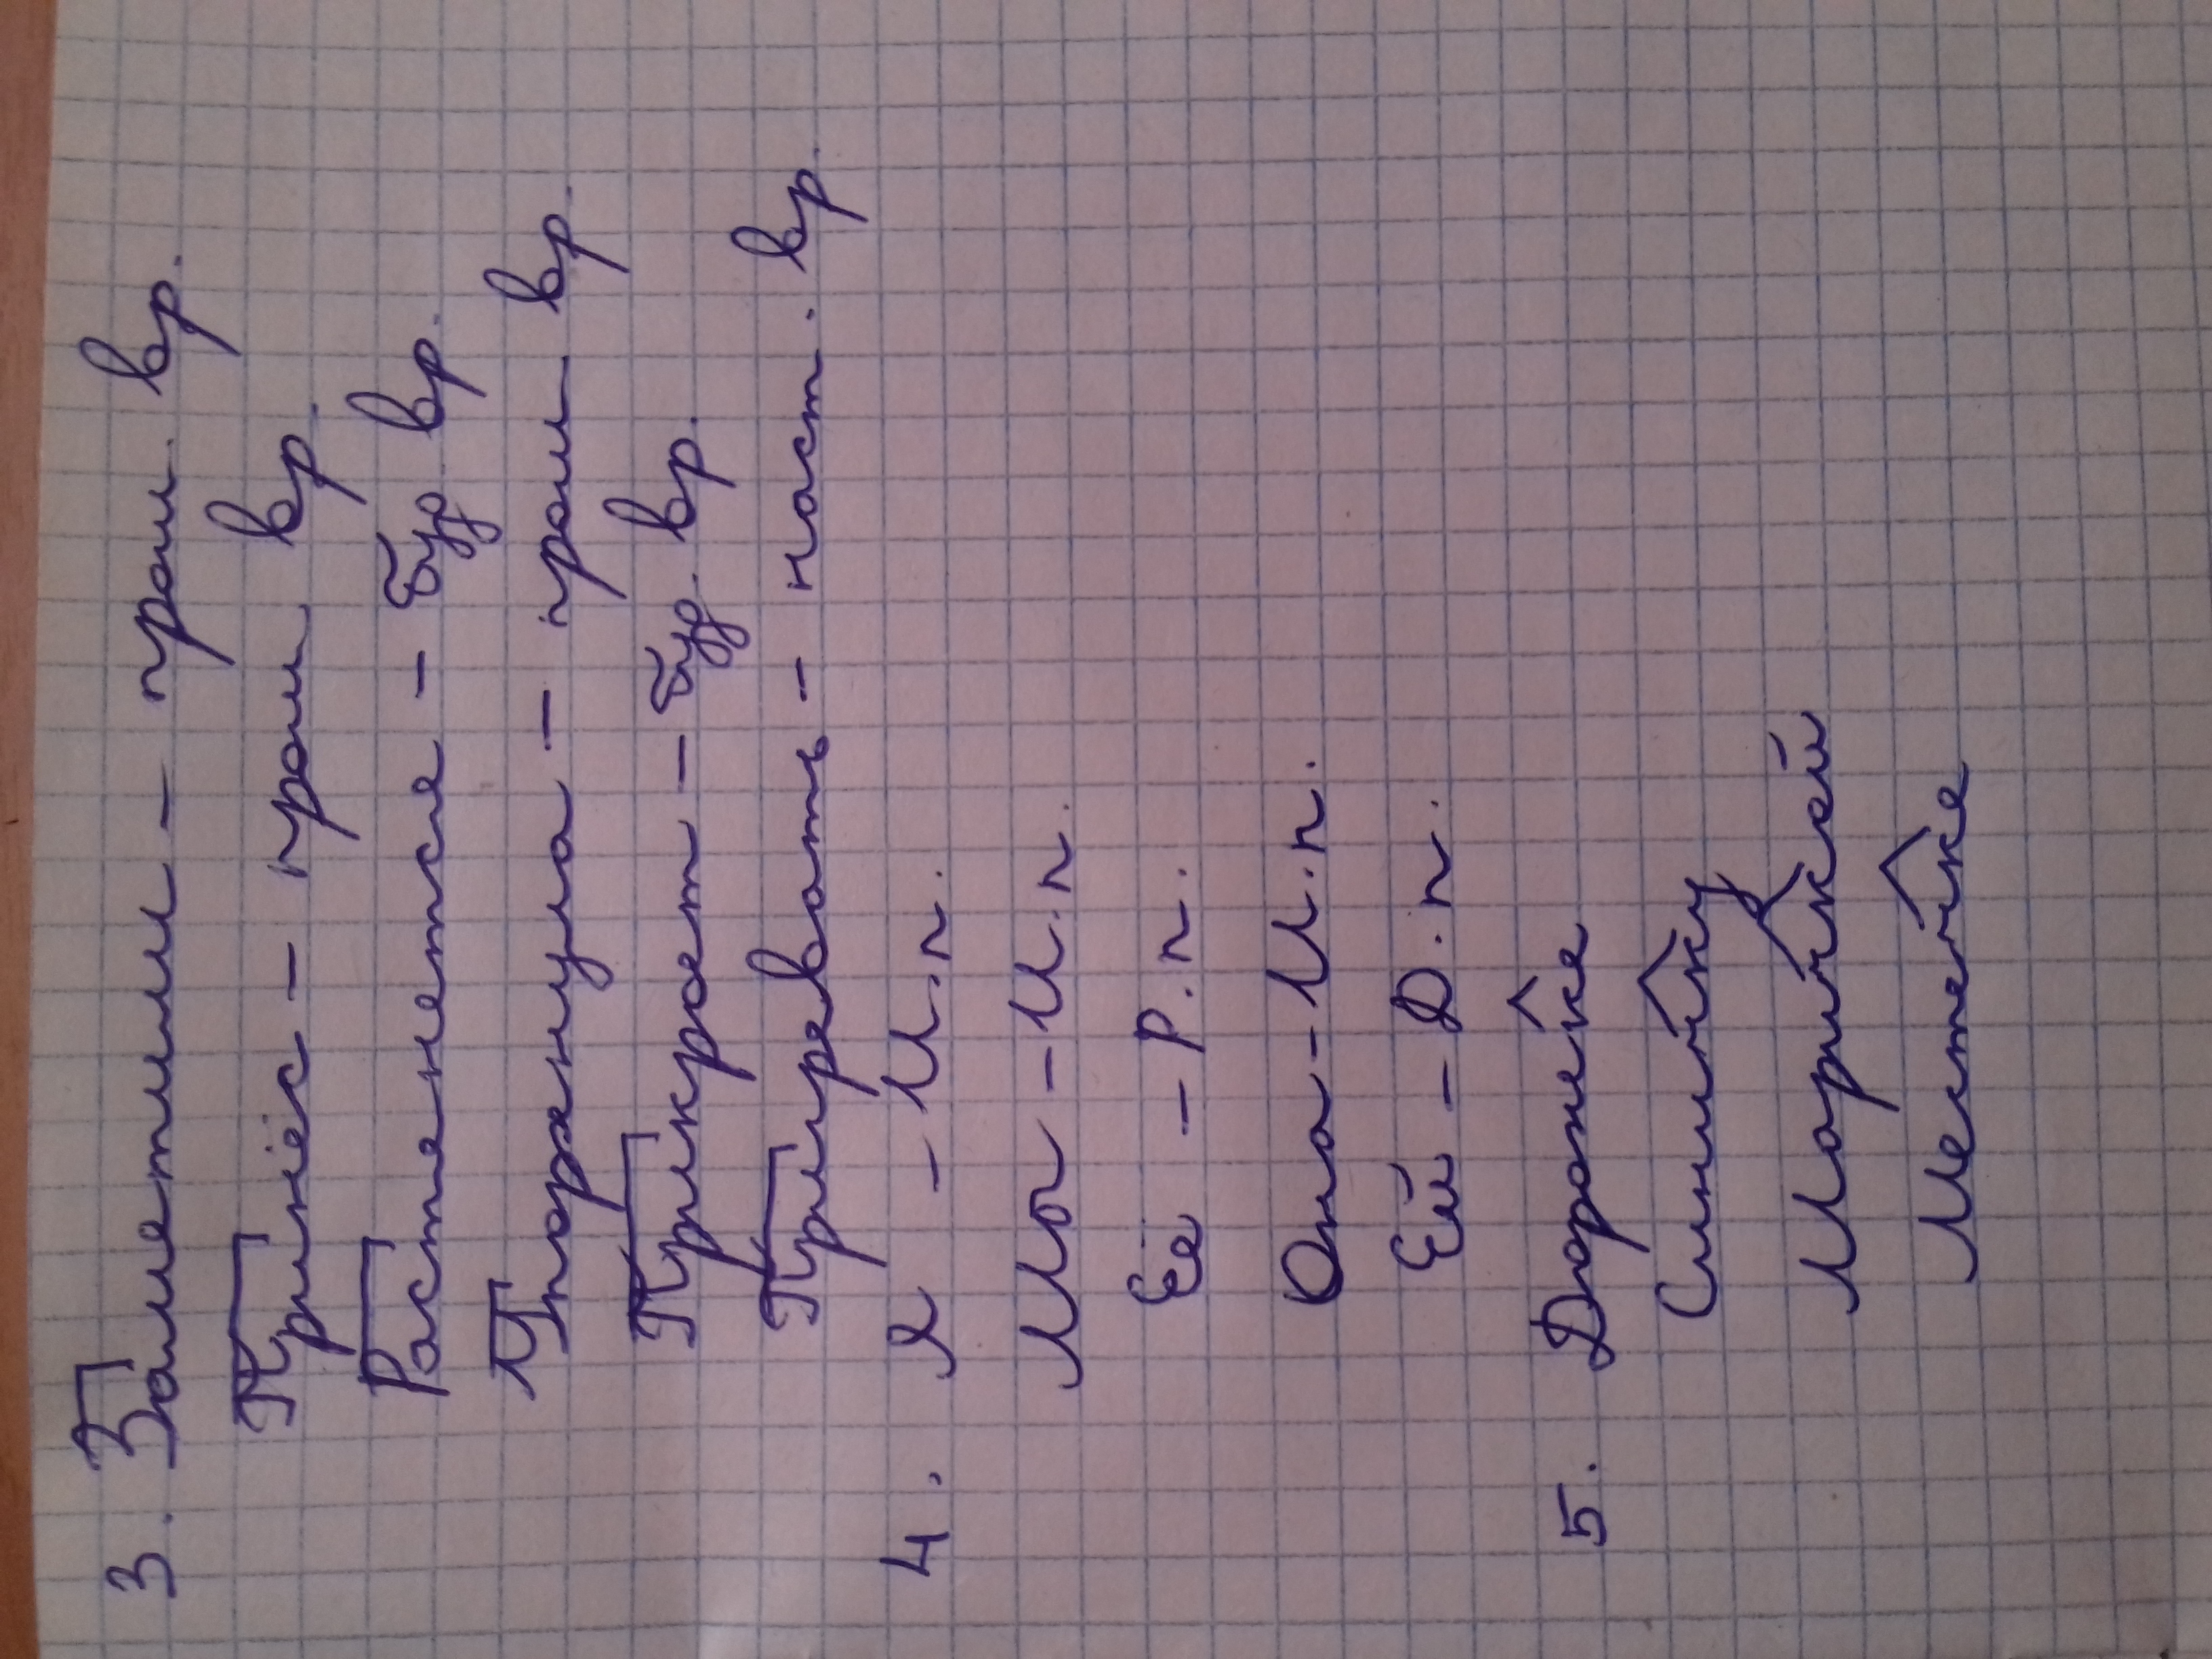 3. Заметили – прош. вр.
Принёс – прош. вр.
Растенется – буд. вр.
Упоржнула – прош вр.
Прикроет – буд. вр.
Пригревать – наст. вр.
4. Я – И.п.
Мы – И.п.
Её – Р.п.
Она – И.п.
Ей – Д.п.
5. Дорожке
Синичку
Маричкой
Местечке